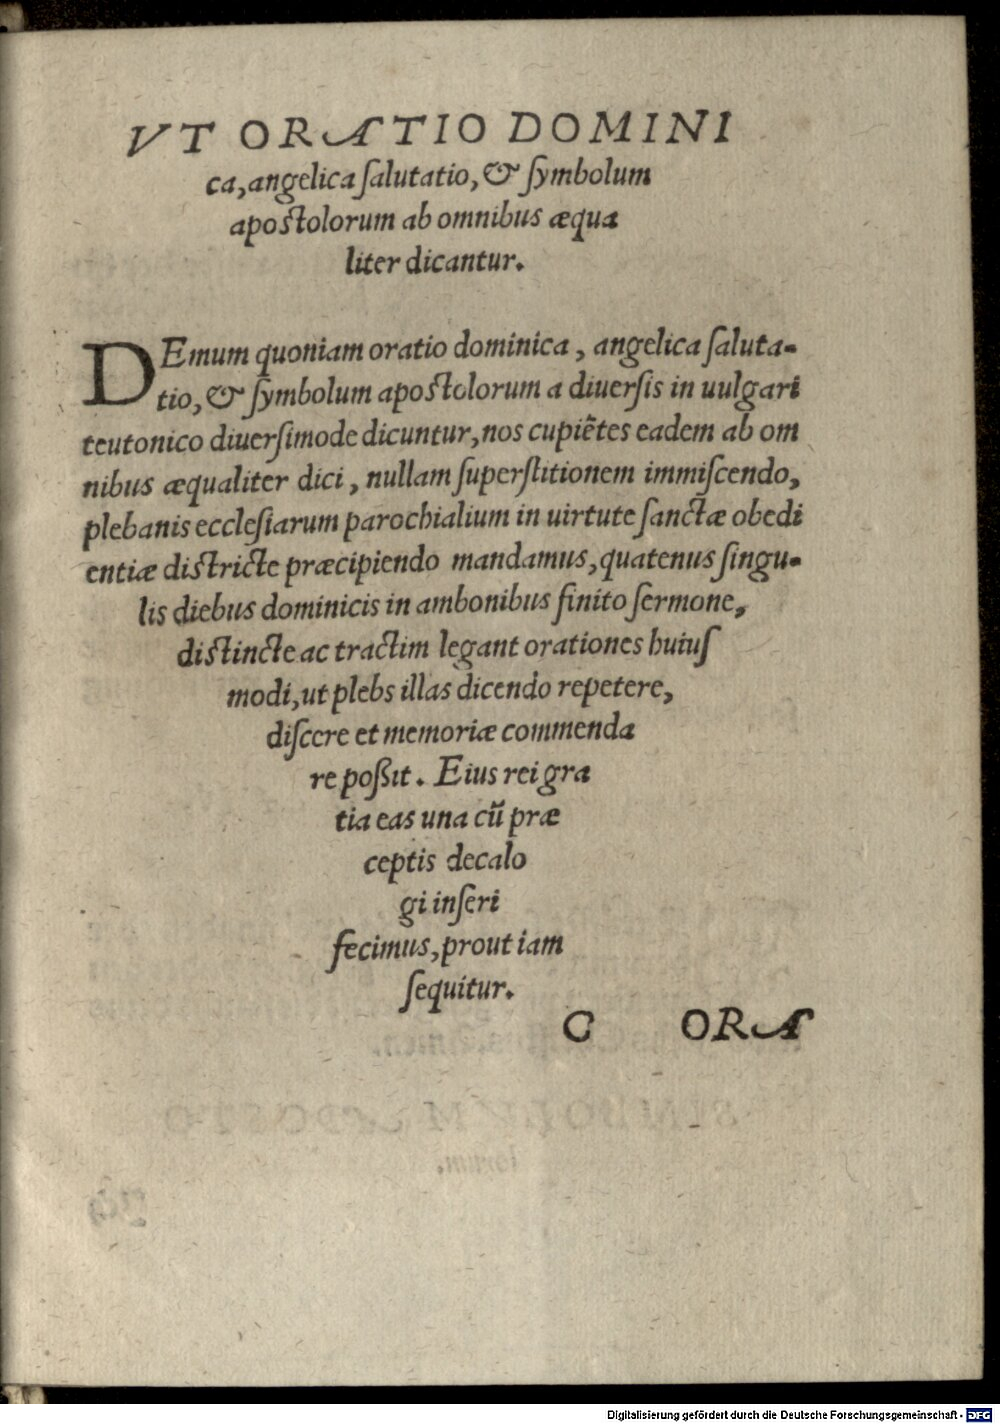 VT ORATIO DOMINI
ca, angelica ſalutatio, & ſymbolum
apoſtolorum ab omnibus æqua
liter dicantur.
DEmum quoniam oratio dominica, angelica ſaluta-
tio, & ſymbolum apoſtolorum a diuerſis in uulgari
teutonico diuerſimode dicuntur, nos cupiẽtes eadem ab om
nibus æqualiter dici, nullam ſuperſtitionem immiſcendo,
plebanis eccleſiarum parochialium in uirtute ſanctæ obedi
entiæ diſtricte præcipiendo mandamus, quatenus ſingu-
lis diebus dominicis in ambonibus finito ſermone,
diſtincte ac tractim legant orationes huiuſ
modi, ut plebs illas dicendo repetere,
diſcere et memoriæ commenda
re poßit. Eius rei gra
tia eas una cũ præ
ceptis decalo
gi inſeri
fecimus, prout iam
ſequitur.
C ORA
Digitalisierung gefördert durch die Deutsche Forschungsgemeinschaft - DFG